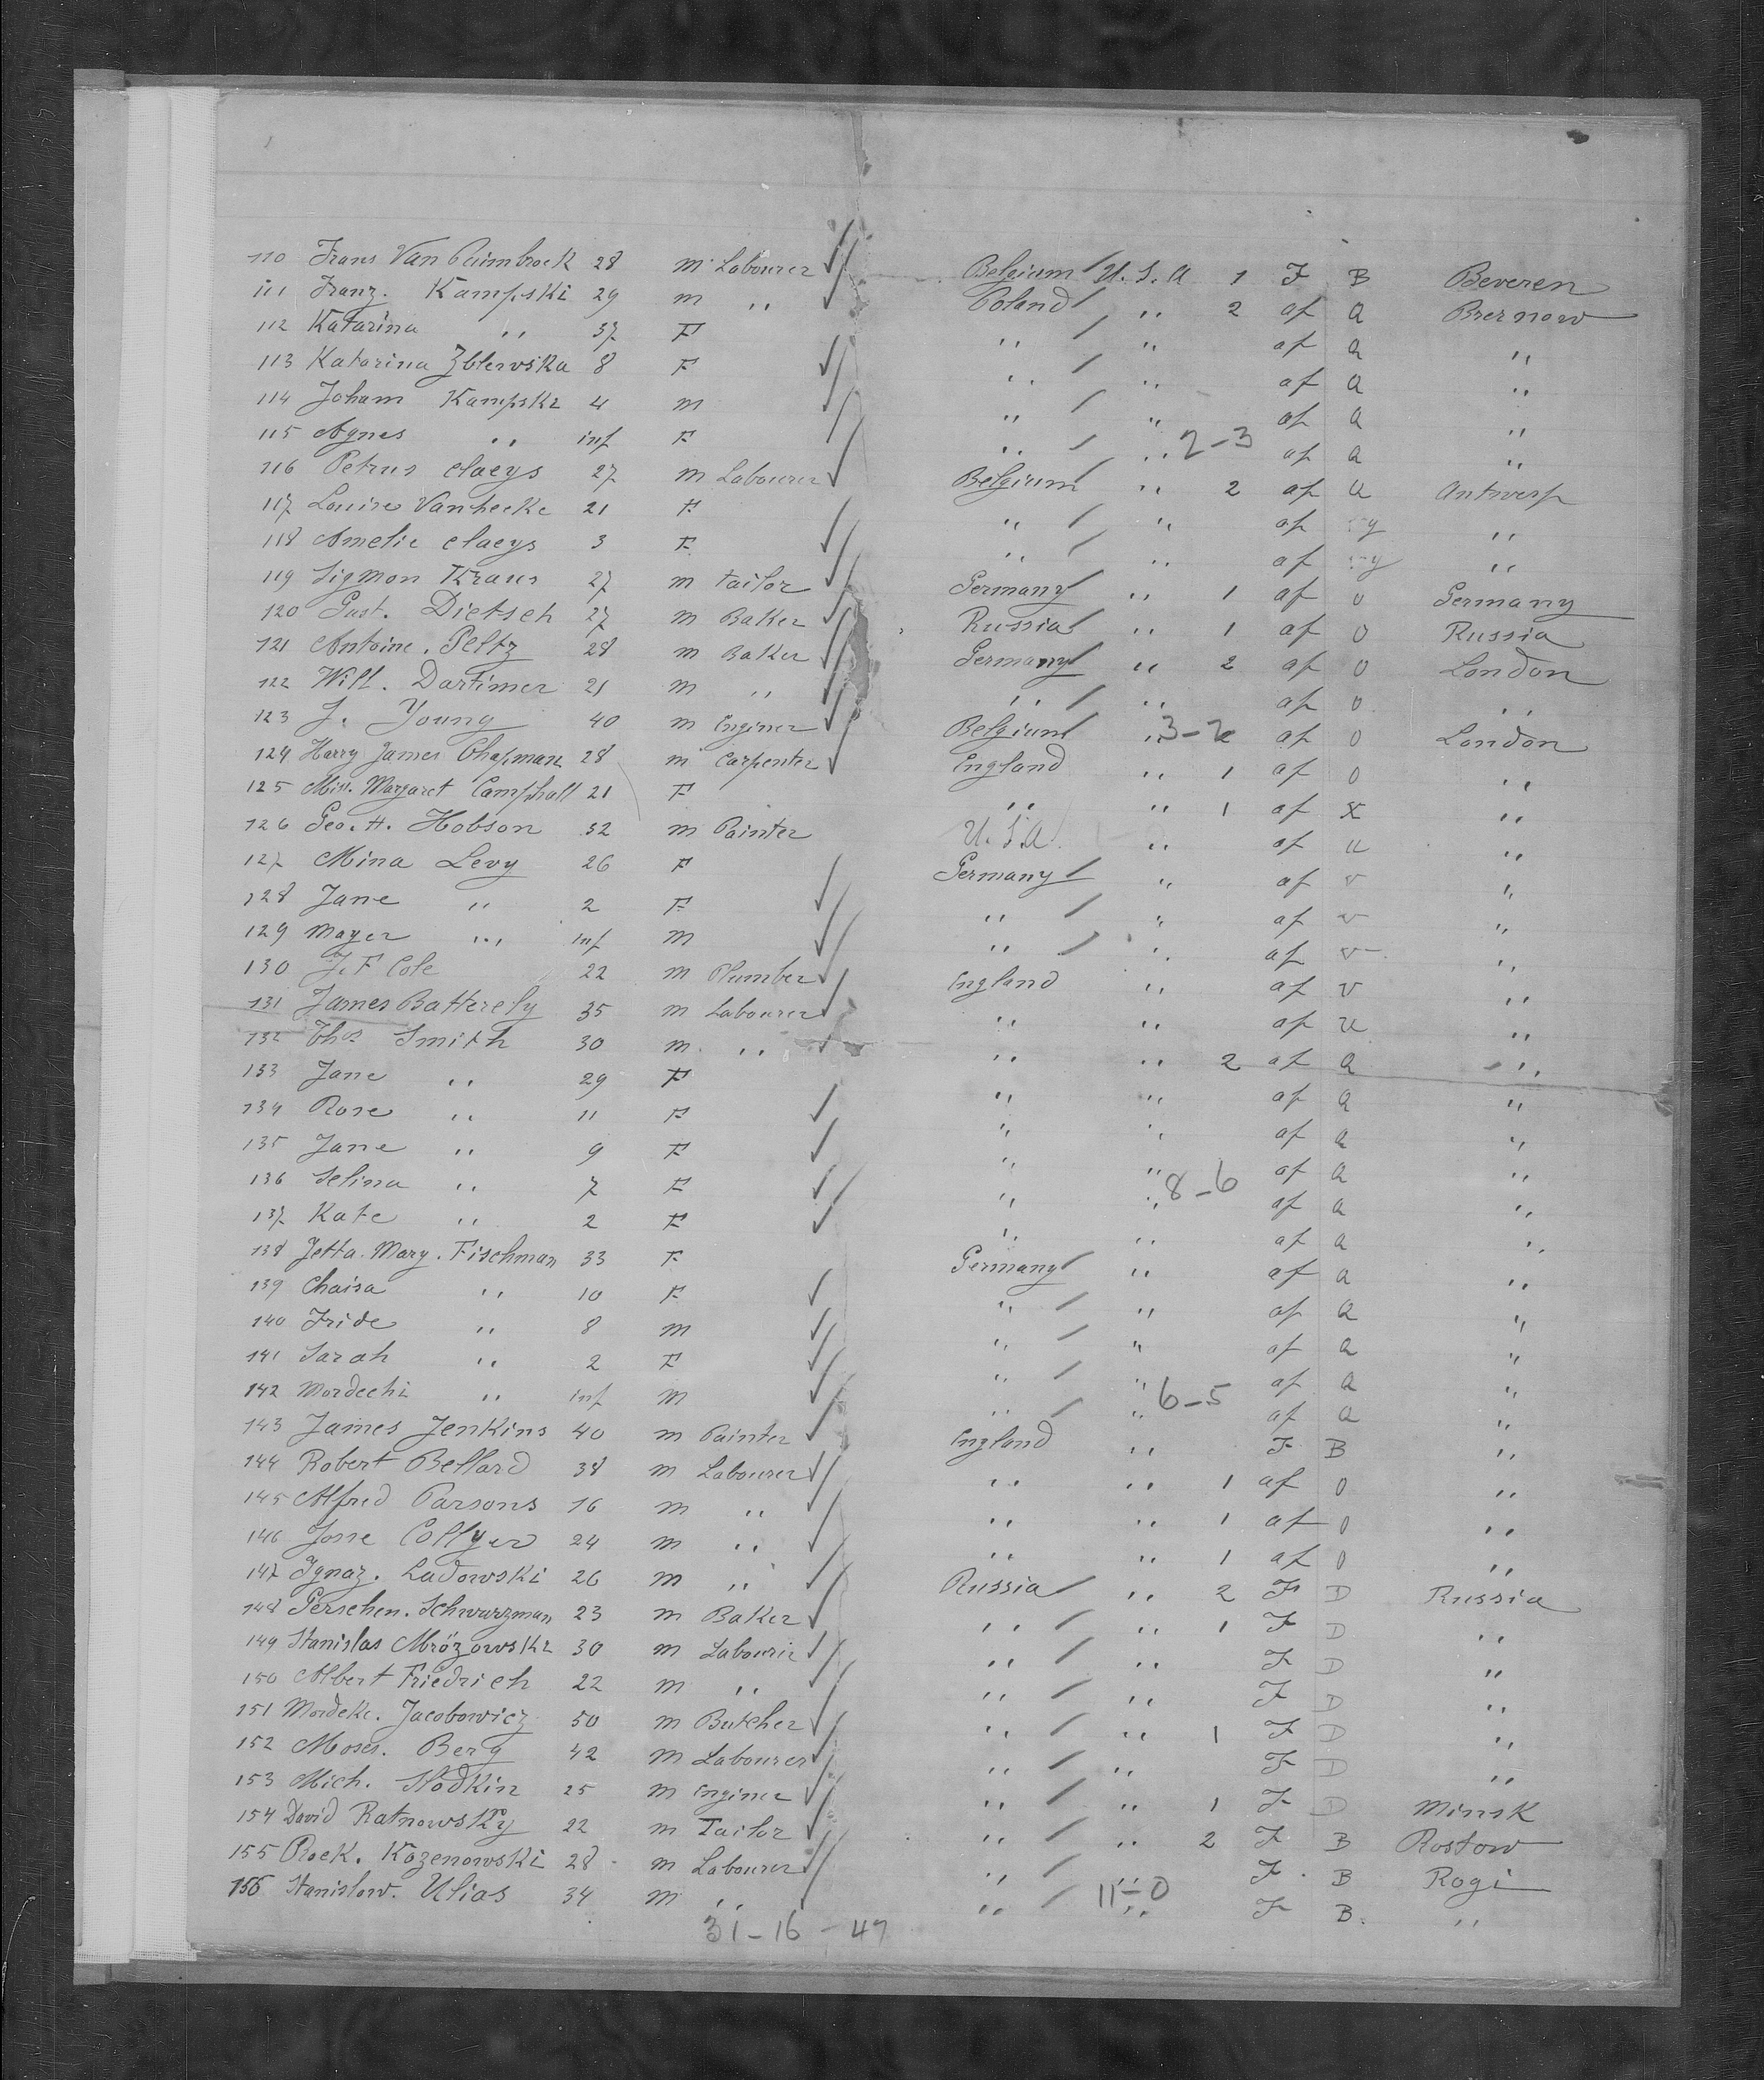 110 Frans Van Puimbroek 28 m Labourer Belgium U.S.A 1 F B Beveren
111 Franz. Kampski 29 m ,, Poland ,, 2 af a Brernow
112 Katarina ,, 37 F ,, ,, af a ,,
113 Katarina Zblewska 8 F ,, ,, af a ,,
114 Joham Kampski 4 m ,, ,, af a ,,
115 Agnes ,, inf F ,, ,, 2-3 af a ,,
116 Petrus Claeys 27 m Labourer Belgium ,, 2 af a Antwerp
117 Louise Vanhecke 21 F ,, ,, af y ,,
118 Amelie Claeys 3 F ,, ,, af y ,,
119 Sigmon Kraus 27 m Tailor Germany ,, 1 af o Germany
120 Gust. Dietsch 27 m Baker Russia ,, 1 af o Russia
121 Antoine. Peltz 28 m Baker Germany ,, 2 af o London
122 Will. Dartimer 21 m ,, ,, ,, af o ,,
123 J. Young 40 m Enginer Belgium ,, 3-2 af o London
124 Harry James Chapman 28 m Carpenter England ,, 1 af o ,,
125 Miss. Margaret Camphall 21 F ,, ,, 1 af x ,,
126 Geo. H. Hobson 32 m Painter U.S.A. ,, af u ,,
127 Mina Levy 26 F Germany ,, af v ,,
128 Jane ,, 2 F ,, ,, af v ,,
129 Mayer ,, inf m ,, ,, af v ,,
130 J. F Cole 22 m Plumber England ,, af v ,,
131 James Batterely 35 m Labourer ,, ,, af u ,,
132 Thos Smith 30 m ,, ,, ,, 2 af a ,,
133 Jane ,, 29 F ,, ,, af a ,,
134 Rose ,, 11 F ,, ,, af a ,,
135 Jane ,, 9 F ,, ,, af a ,,
136 Selina ,, 7 F ,, ,, 8-6 af a ,,
137 Kate ,, 2 F ,, ,, af a ,,
138 Jetta. Mary. Fischman 33 F Germany ,, af a ,,
139 Chaisa ,, 10 F ,, ,, af a ,,
140 Fride ,, 8 m ,, ,, af a ,,
141 Sarah ,, 2 F ,, ,, af a ,,
142 Mordechi ,, inf m ,, ,, 6-5 af a ,,
143 James Jenkins 40 m Painter England ,, F B ,,
144 Robert Bellard 38 m Labourer ,, ,, 1 af o ,,
145 Alfred Parsons 16 m ,, ,, ,, 1 af o ,,
146 Josse Collyer 24 m ,, ,, ,, 1 af o ,,
147 Ignaz. Ladowski 26 m ,, Russia ,, 2 F D Russia
148 Gerschen. Schwarzman 23 m Baker ,, ,, 1 F D ,,
149 Stanislas Mrözowski 30 m Labourer ,, ,, F D ,,
150 Albert Friedrich 22 m ,, ,, ,, F D ,,
151 Mordeke. Jacobowicz 50 m Butcher ,, ,, 1 F D ,,
152 Moses. Berg 42 m Labourer ,, ,, F D ,,
153 Mich. Slodkin 25 m Enginer ,, ,, 1 F D Minsk
154 David Ratnowsky 22 m Tailor ,, ,, 2 F B Rostow
155 Rock. Kozenowski 28 m Labourer ,, ,, F B Rogi
156 Stanislow. Ulias 34 m ,, ,, 11-0 ,, F B. ,,
31-16-47